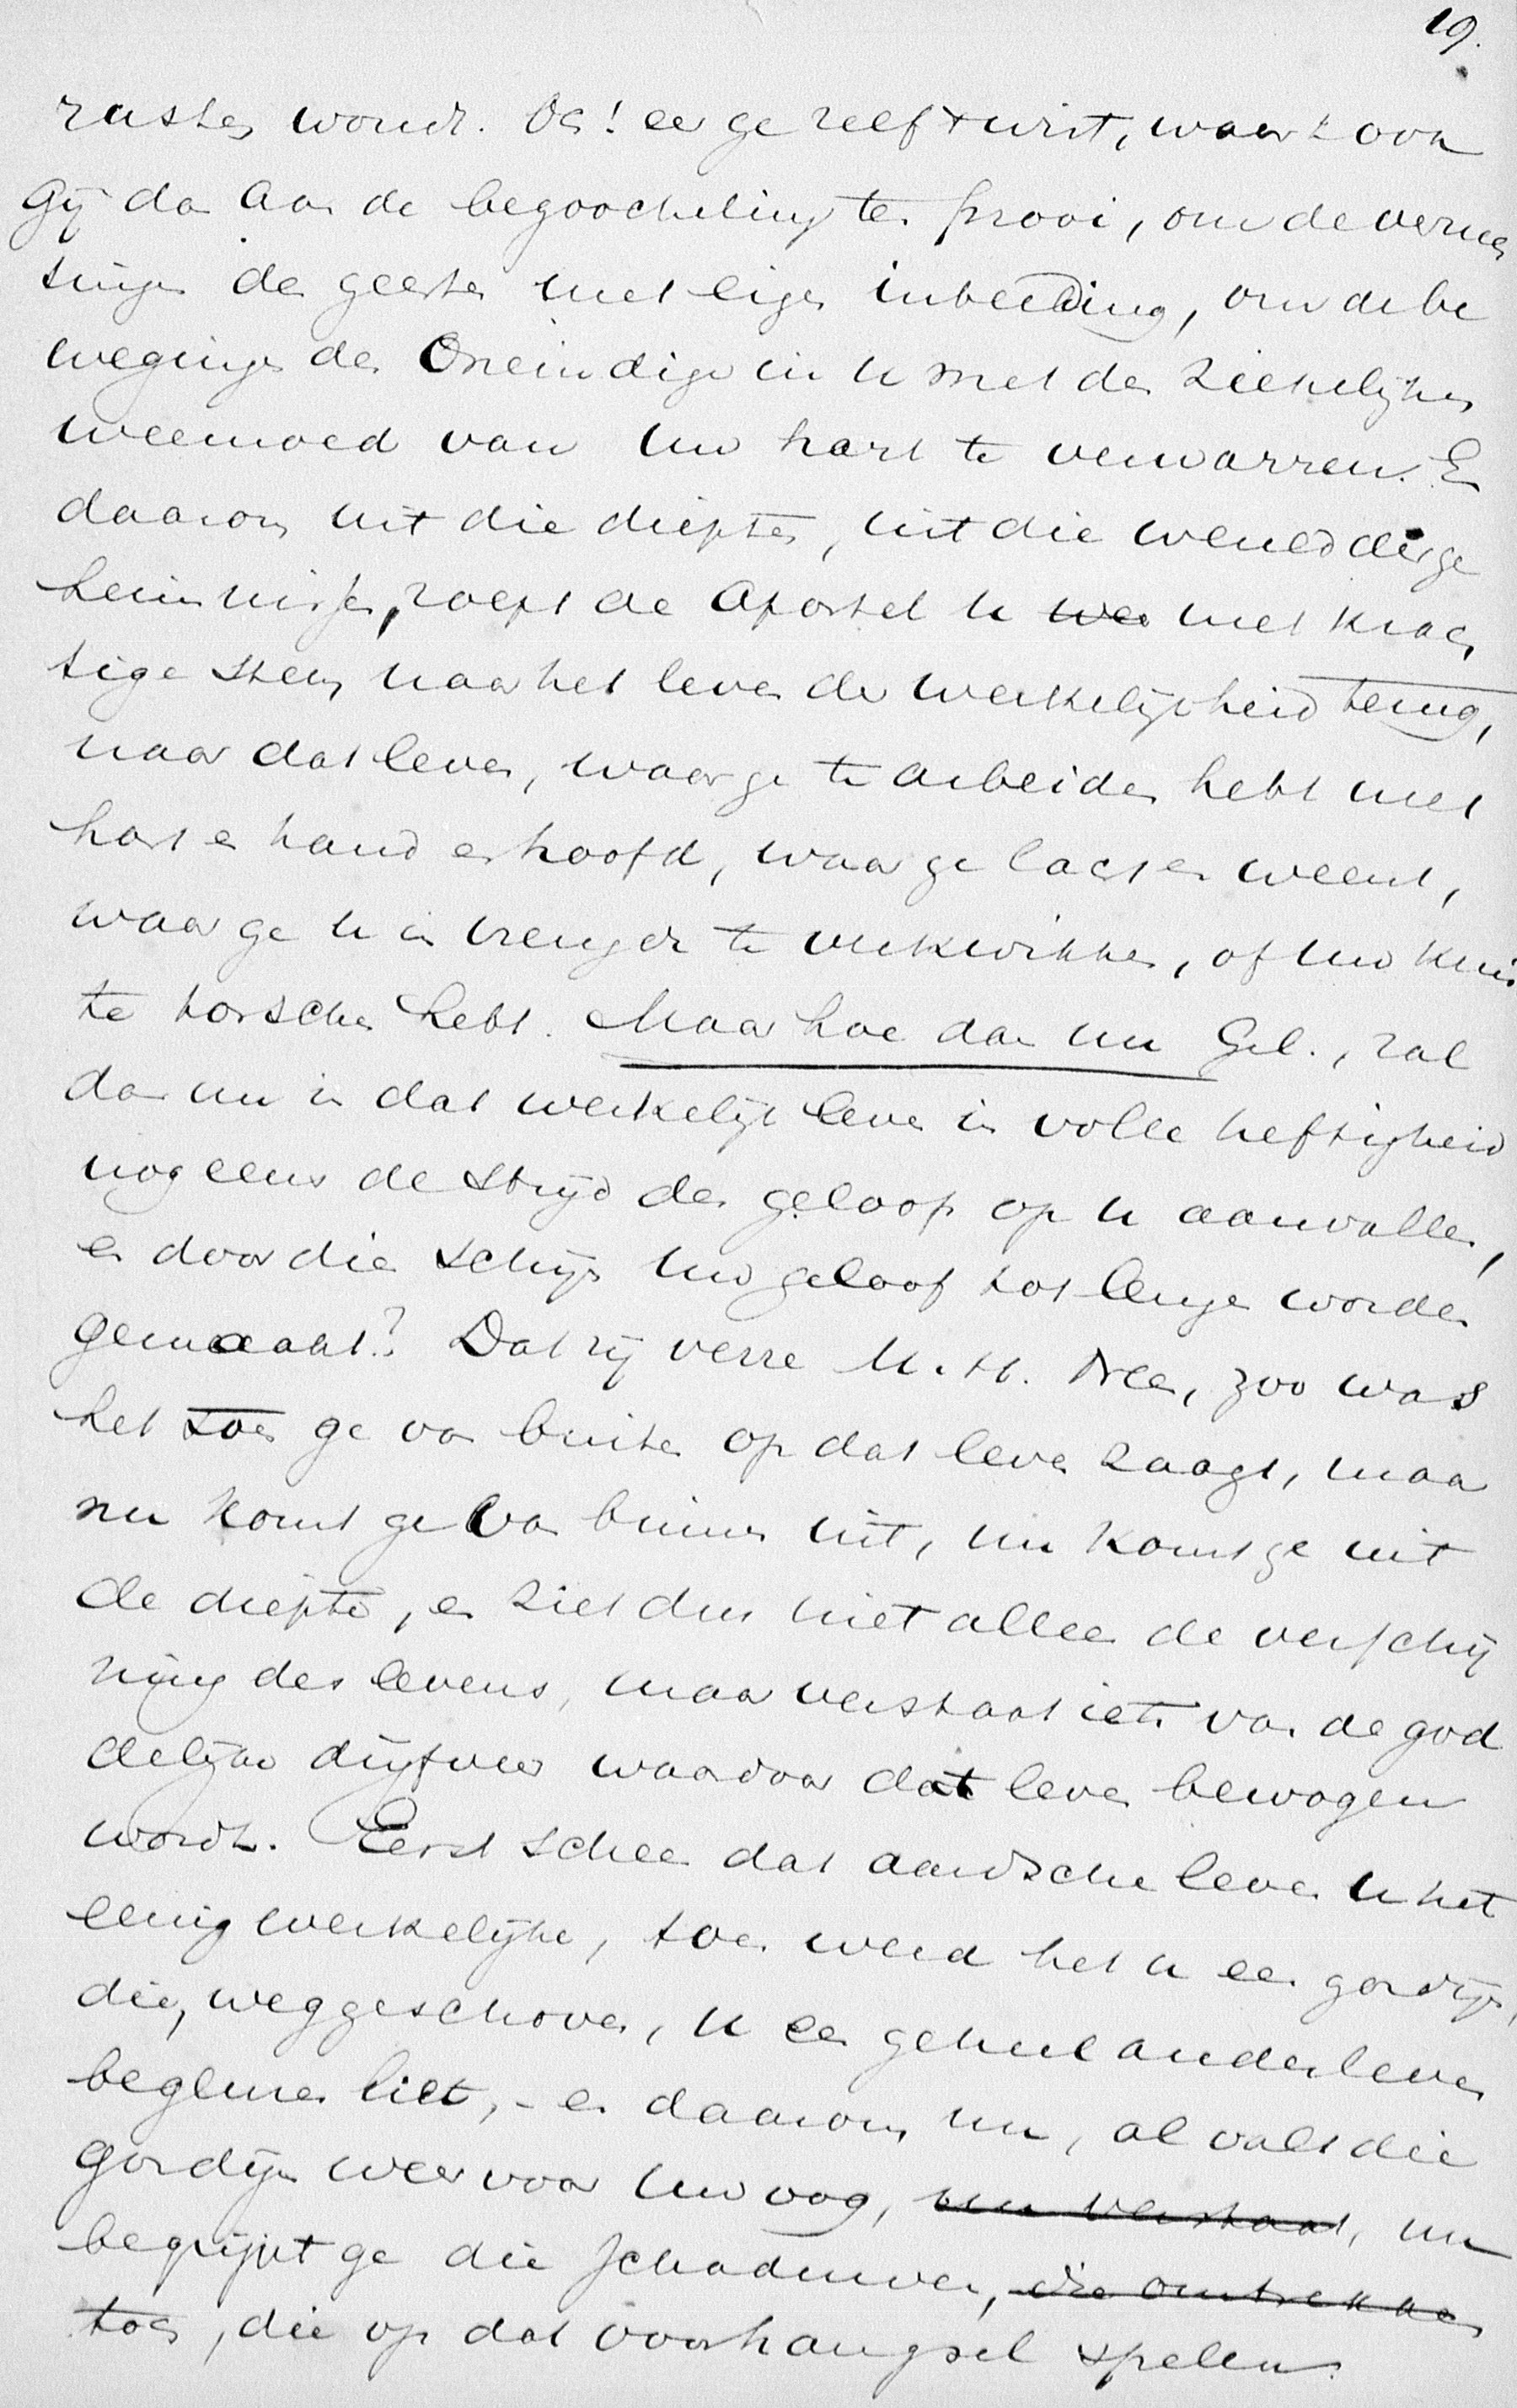 19.
rusten wordt. Och! eer ge zelf 't wist, waart ook
Gij dan aan de begoocheling ten prooi, om de vermer
singen des geestes met eigen inbeelding, om de be
wegingen des Oneindigen in u met de ziekelijken
weemoed van uw hart te verwarren. En
daarom uit die diepten, uit die wereld der ge
heimnissen, roept de Apostel u met krach
tige stem naar het leven der werkelijkheid terug,
naar dat leven, waar ge te arbeiden hebt met
hart en hand en hoofd, waar ge lacht en weent,
waar ge u in vreugde te verkwikken, of uw kruis
te torschen hebt. Maar hoe dan nu Gel., zal
dan nu in dat werkelijk leven in volle heftigheid
nog eens de strijd des geloofs op u aanvallen,
en door die schijn uw geloof tot leugen worden
gemaakt? Dat zij verre M. H. Neen, zoo was
het toen ge van buiten op dat leven zaagt, maar
nu komt ge van binnen uit, nu komt ge uit
de diepte, en ziet dus niet alleen de verschij
ning des levens, maar verstaat iets van de god
delijke drijfveer waardoor dat leven bewogen
wordt. Eerst scheen dat aardsche leven u het
eenig werkelijke, toen werd het u een gordijn,
die, weggeschoven, u een geheel ander leven
beglimmen liet, - en daarom nu, al valt die
gordijn weer voor uw oog, nu verstaat, nu
begrijpt ge die schaduwen, die omtrekken
toch, die op dat voorhangsel spelen.